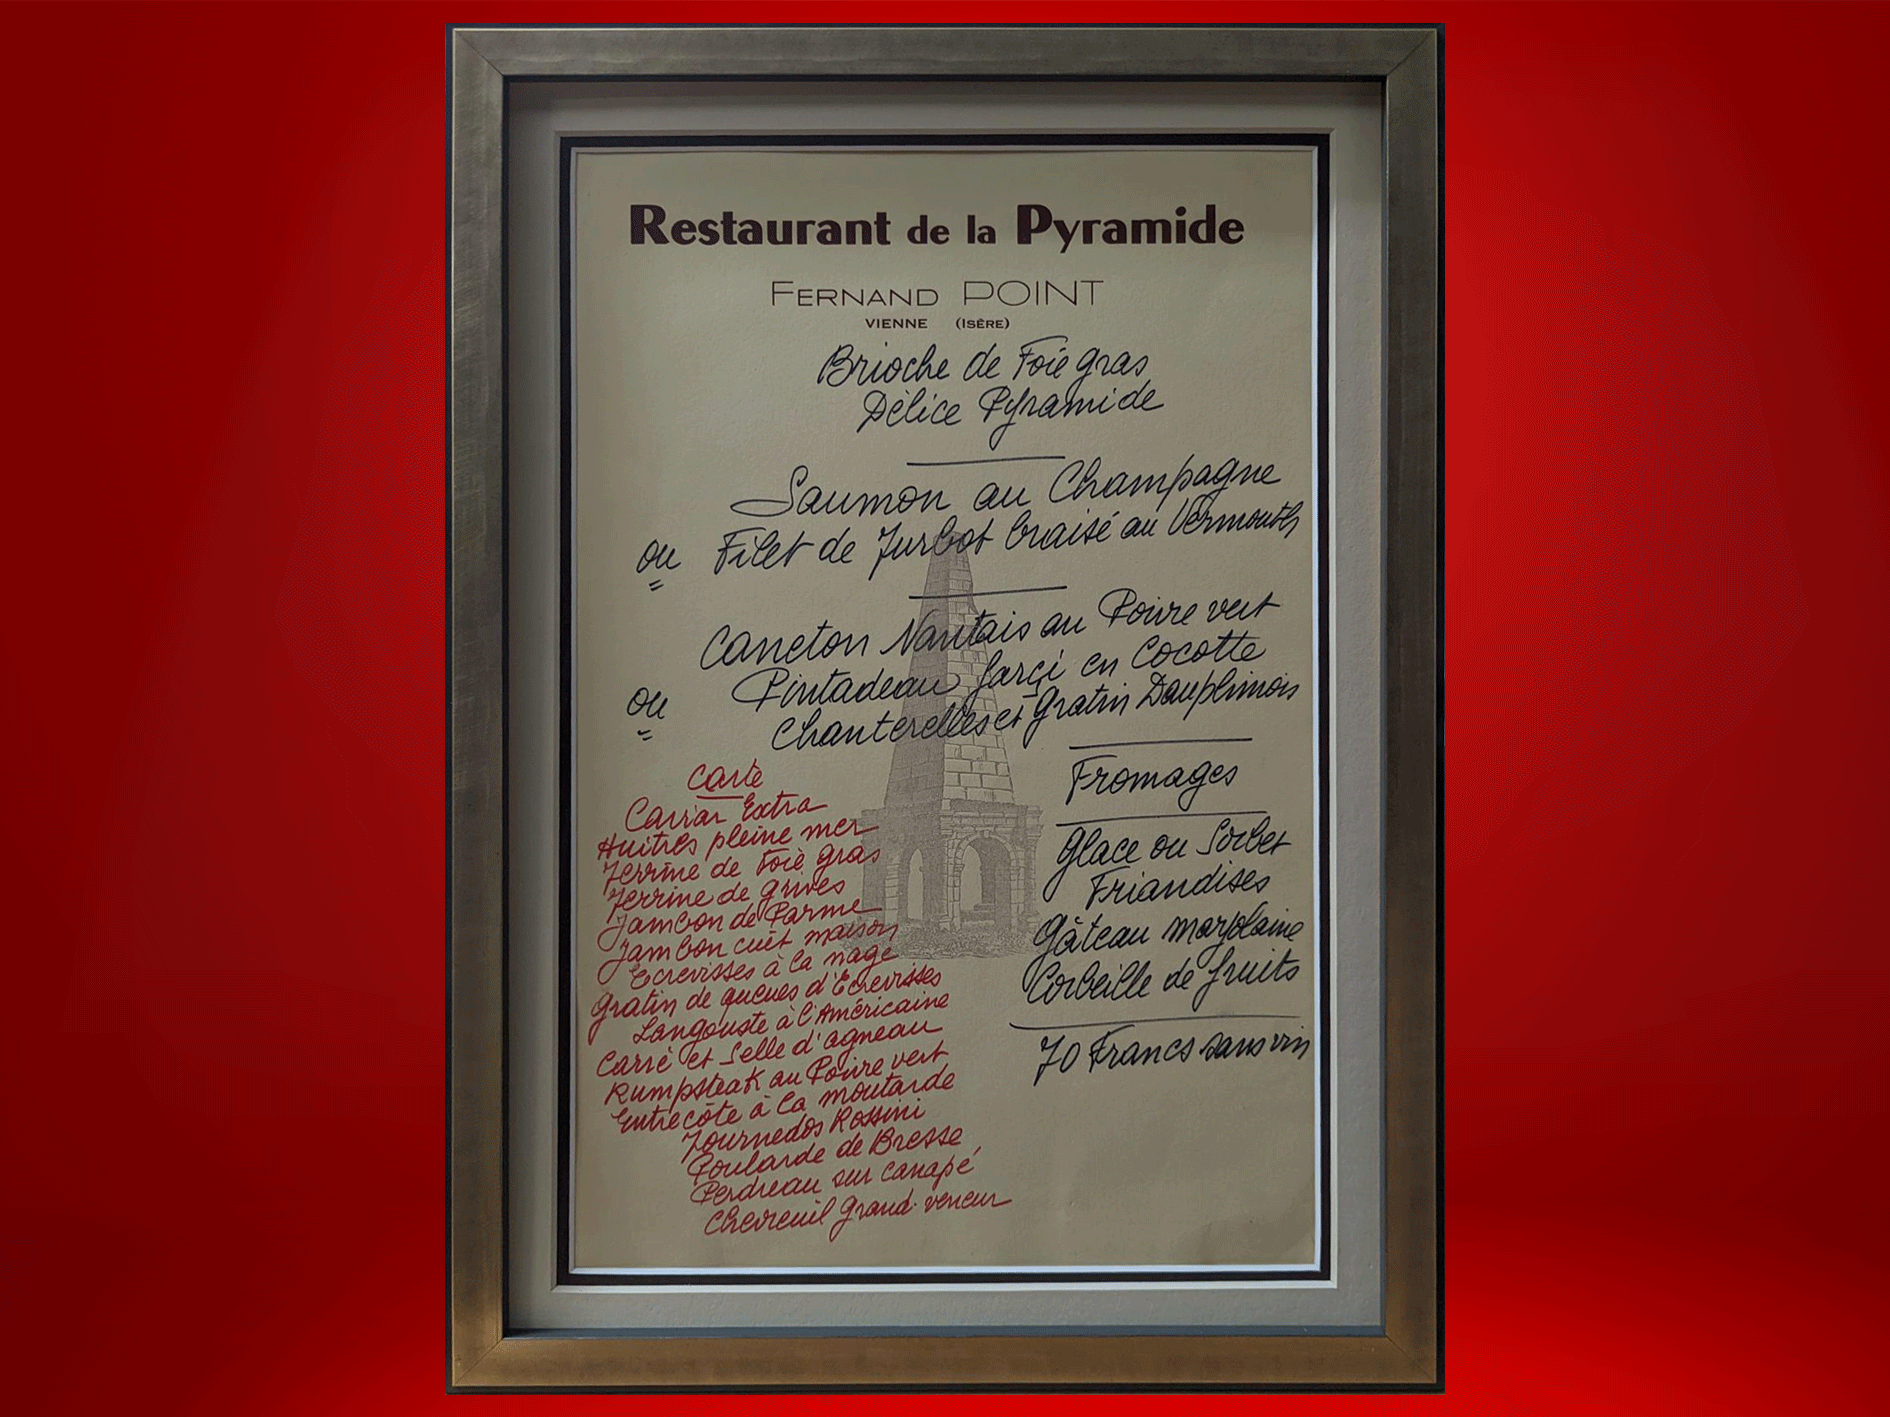 Restaurant de la Pyramide
FERNAND POINT
VIENNE (ISÈRE)
Brioche de Foie gras
Délice Pyramide
Saumon au Champagne
ou Filet de Turbot braisé au Vermouth
Caneton Nantais au Poivre vert
ou Pintadeau farçi en Cocotte
Chanterelles et Gratin Dauphinois
Carte
Caviar Extra
Huîtres pleine mer
Terrine de Foie gras
Terrine de grives
Jambon de Parme
Jambon cuit maison
Ecrevisses à la nage
Gratin de queues d'Ecrevisses
Langouste à l'Américaine
Carré et Selle d'agneau
Rumpsteak au Poivre vert
Entrecôte à la moutarde
Tournedos Rossini
Poularde de Bresse
Perdreau sur canapé
Chevreuil Grand-veneur
Fromages
Glace ou Sorbet
Friandises
Gâteau marjolaine
Corbeille de fruits
70 Francs sans vin